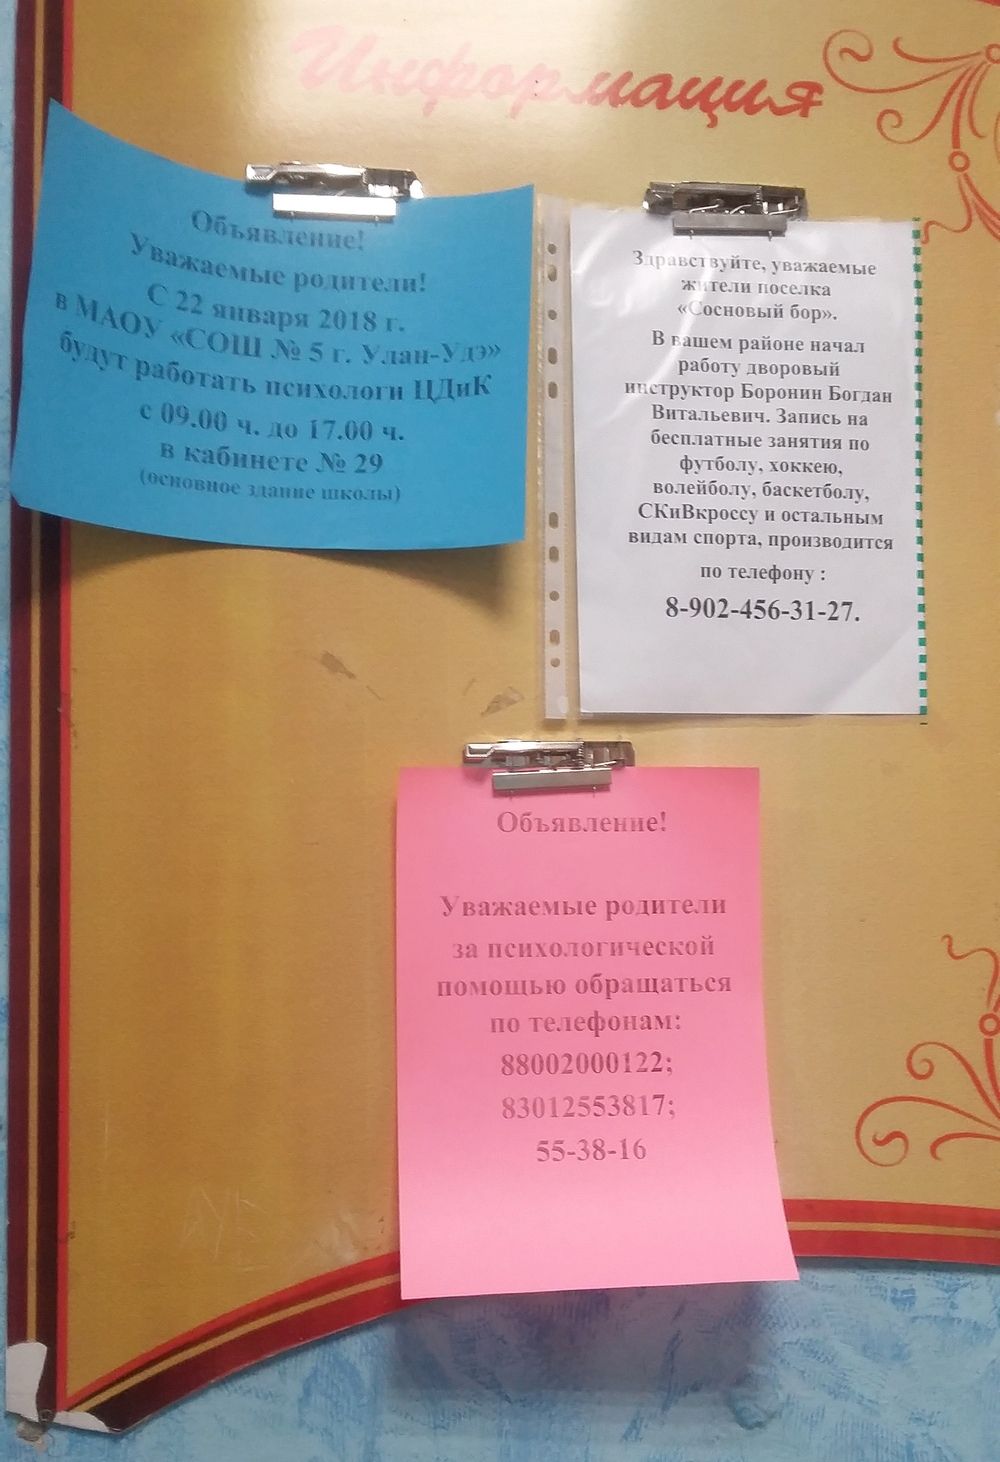 Информация
Объявление!
Уважаемые родители!
С 22 января 2018 г.
в МАОУ «СОШ № 5 г. Улан-Удэ»
будут работать психологи ЦДиК
с 09.00 ч. до 17.00 ч.
в кабинете № 29
(основное здание школы)
Здравствуйте, уважаемые
жители поселка
«Сосновый бор».
В вашем районе начал
работу дворовый
инструктор Боронин Богдан
Витальевич. Запись на
бесплатные занятия по
футболу, хоккею,
волейболу, баскетболу,
СКиВкроссу и остальным
видам спорта, производится
по телефону :
8-902-456-31-27.
Объявление!
Уважаемые родители
за психологической
помощью обращаться
по телефонам:
88002000122;
83012553817;
55-38-16